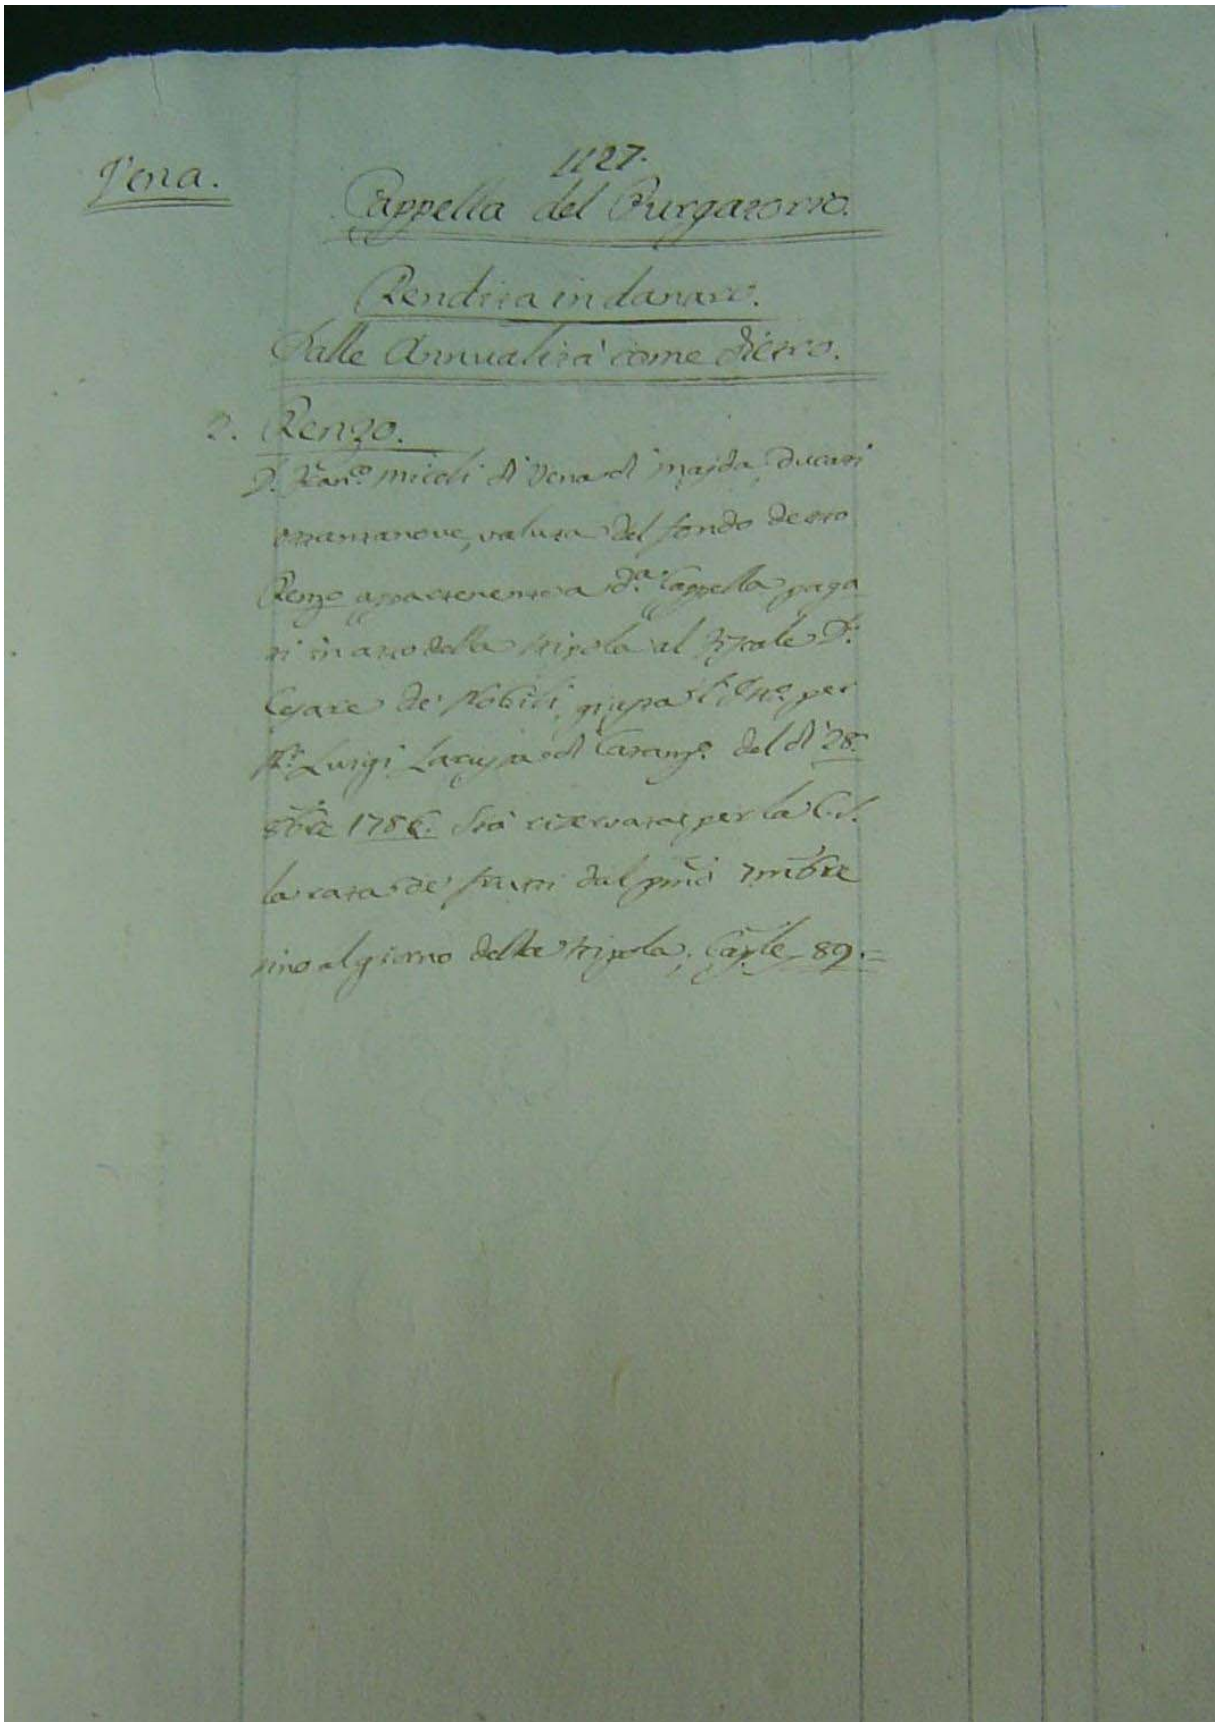 Vena.
1127.
Cappella del Purgatorio.
Rendita in danaro.
Dalle Annualità come dietro.
2. Renzo.
D. Fran.co Miceli di Vena di Majda, Ducati
ottantanove, valuta del fondo detto
Renzo appartenente a d.a Cappella paga
ti in atto della stipola al Fiscale D.
Cesare de Nobili, giusta l' per
N.r Luigi di Catanz.o del dì 28.
8bre 1786. Sta riservata per la C. S.
la rata de' frutti dal pmo 7mbre
sino al giorno della stipola. Cap.le 89.=